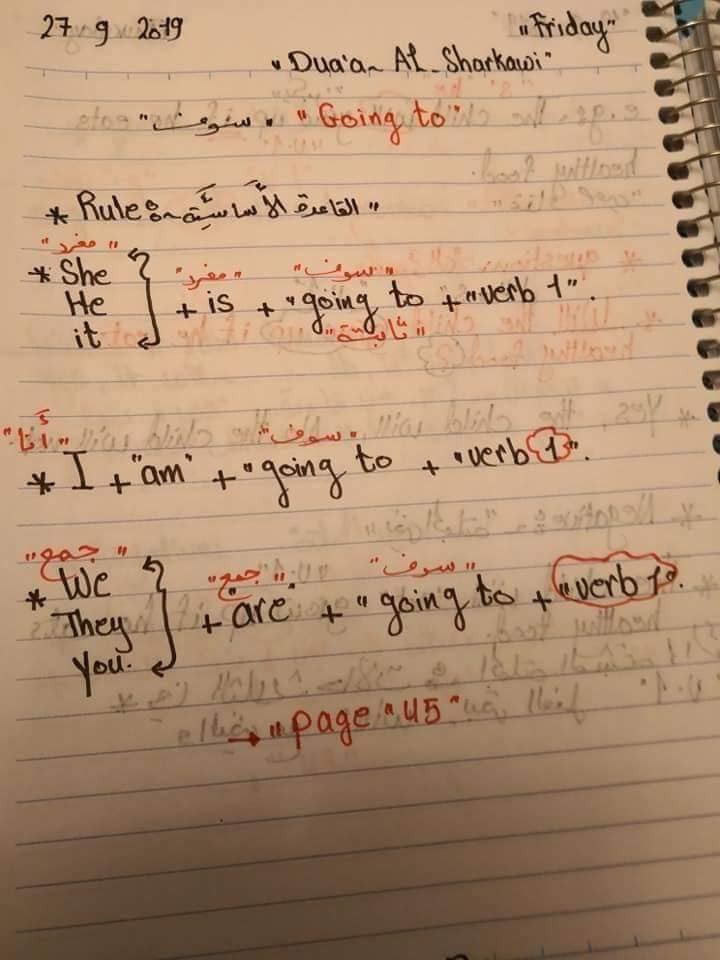 27 9 2019 "Friday"
"Dua'a~ AL-Sharkawi"
"سوف" . "Going to"
* Rule:~ القاعدة الأساسيَّة"
"مفرد"
* She
He
it
"مفرد" "سوف"
+ is + "going to + "verb 1".
"ثابتة"
"أنا" "سوف"
* I + "am" + "going to + "verb 1".
"جمع"
* We
They
You.
"جمع" "سوف"
+ are + "going to + "verb 1".
→ "page "45"